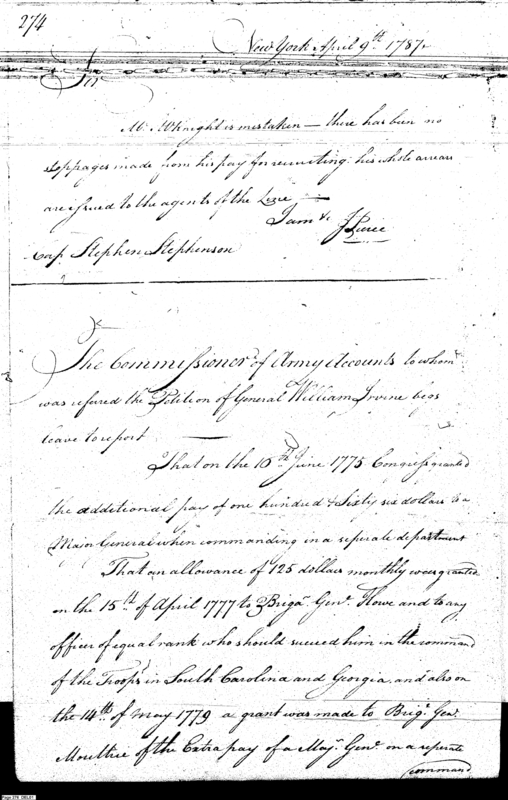 274
New York April 9th. 1787.
Sir
Mr. McKnight is mistaken — there has been no
stoppages made from his pay for recruiting. his whole arrears
are issued to the agents of the Line —
I am &c
J Pierce
Cap. Stephen Stephenson
The Commissioner of Army Accounts to whom
was refered the Petition of General William Irvine begs
leave to report —
That on the 16th June 1775 Congress granted
the additional pay of one hundred & Sixty six dollars to a
Major General when commanding in a seperate department
That an allowance of 125 dollars monthly was granted
on the 15th of April 1777 to Brigr. Genl. Howe and to any
officer of equal rank who should succeed him in the command
of the Troops in South Carolina and Georgia and also on
the 14th of may 1779 a grant was made to Brigr. Genl.
Moultrie of the Extra pay of a Majr. Genl. on a seperate
command